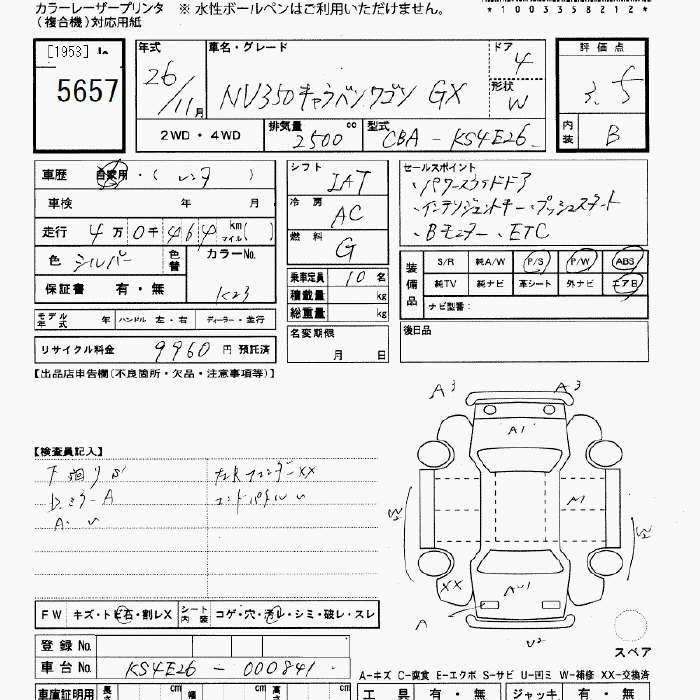 カラーレーザープリンタ ※ 水性ボールペンはご利用いただけません。
(複合機)対応用紙
*1003358212*
[1953] 1a
5657
年式
26/11月
車名・グレード
NV350キャラバンワゴン GX
ドア
4
形状
W
評価点
3.5
内装
B
2WD・4WD
排気量
2500 cc
型式
CBA-KS4E26
車歴 自家用・(レンタ)
車検 年 月
走行 4万0千464 km マイル( )
色 シルバー
色替
カラーNo.
K23
保証書 有・無
モデル年式 年 ハンドル 左・右 ディーラー・並行
リサイクル料金 9960円 預託済
シフト
IAT
冷房
AC
燃料
G
乗車定員 10名
積載量 kg
総重量 kg
名変期限
月 日
セールスポイント
・パワースライドドア
・インテリジェントキー・プッシュスタート
・Bモニター・ETC
装備品
S/R 純A/W P/S P/W ABS
純TV 純ナビ 革シート 外ナビ エアB
ナビ型番:
後日品
【出品店申告欄(不良箇所・欠品・注意事項等)】
【検査員記入】
下廻りS
左RフェンダーXX
D.ミラーA
エンドパネルU
A3
A3
A1
A1
XX
A
U2
スペア
FW キズ・トビ石・割レX
シート内装 コゲ・穴・汚レ・シミ・破レ・スレ
登録No.
車台No. KS4E26-000841
A-キズ C-腐食 E-エクボ S-サビ U-凹ミ W-補修 XX-交換済
車庫証明用 長さ cm 幅 cm 高さ cm
工具 有・無 ジャッキ 有・無